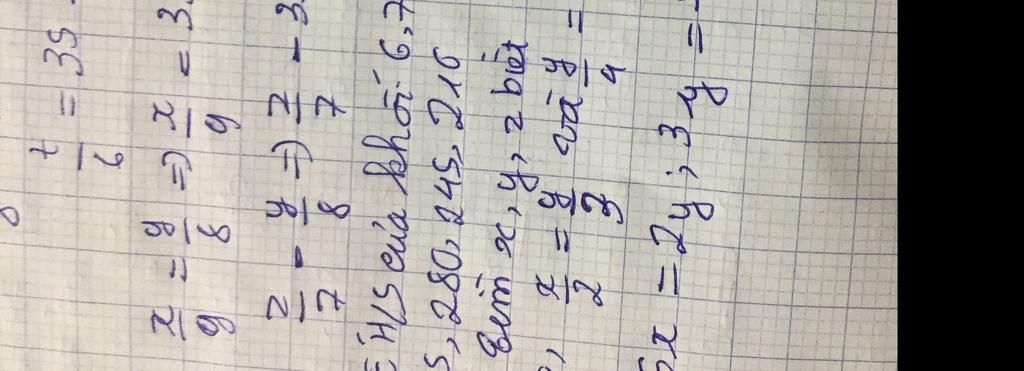 t/6 = 35
x/9 = y/8 => x/9 = 3
z/7 = y/8 => z/7 = 3
H/S của khối 6, 7
5, 280, 245, 216
x, y, z biết
x/2 = y/3 và y/4 =
5x = 2y ; 3y =